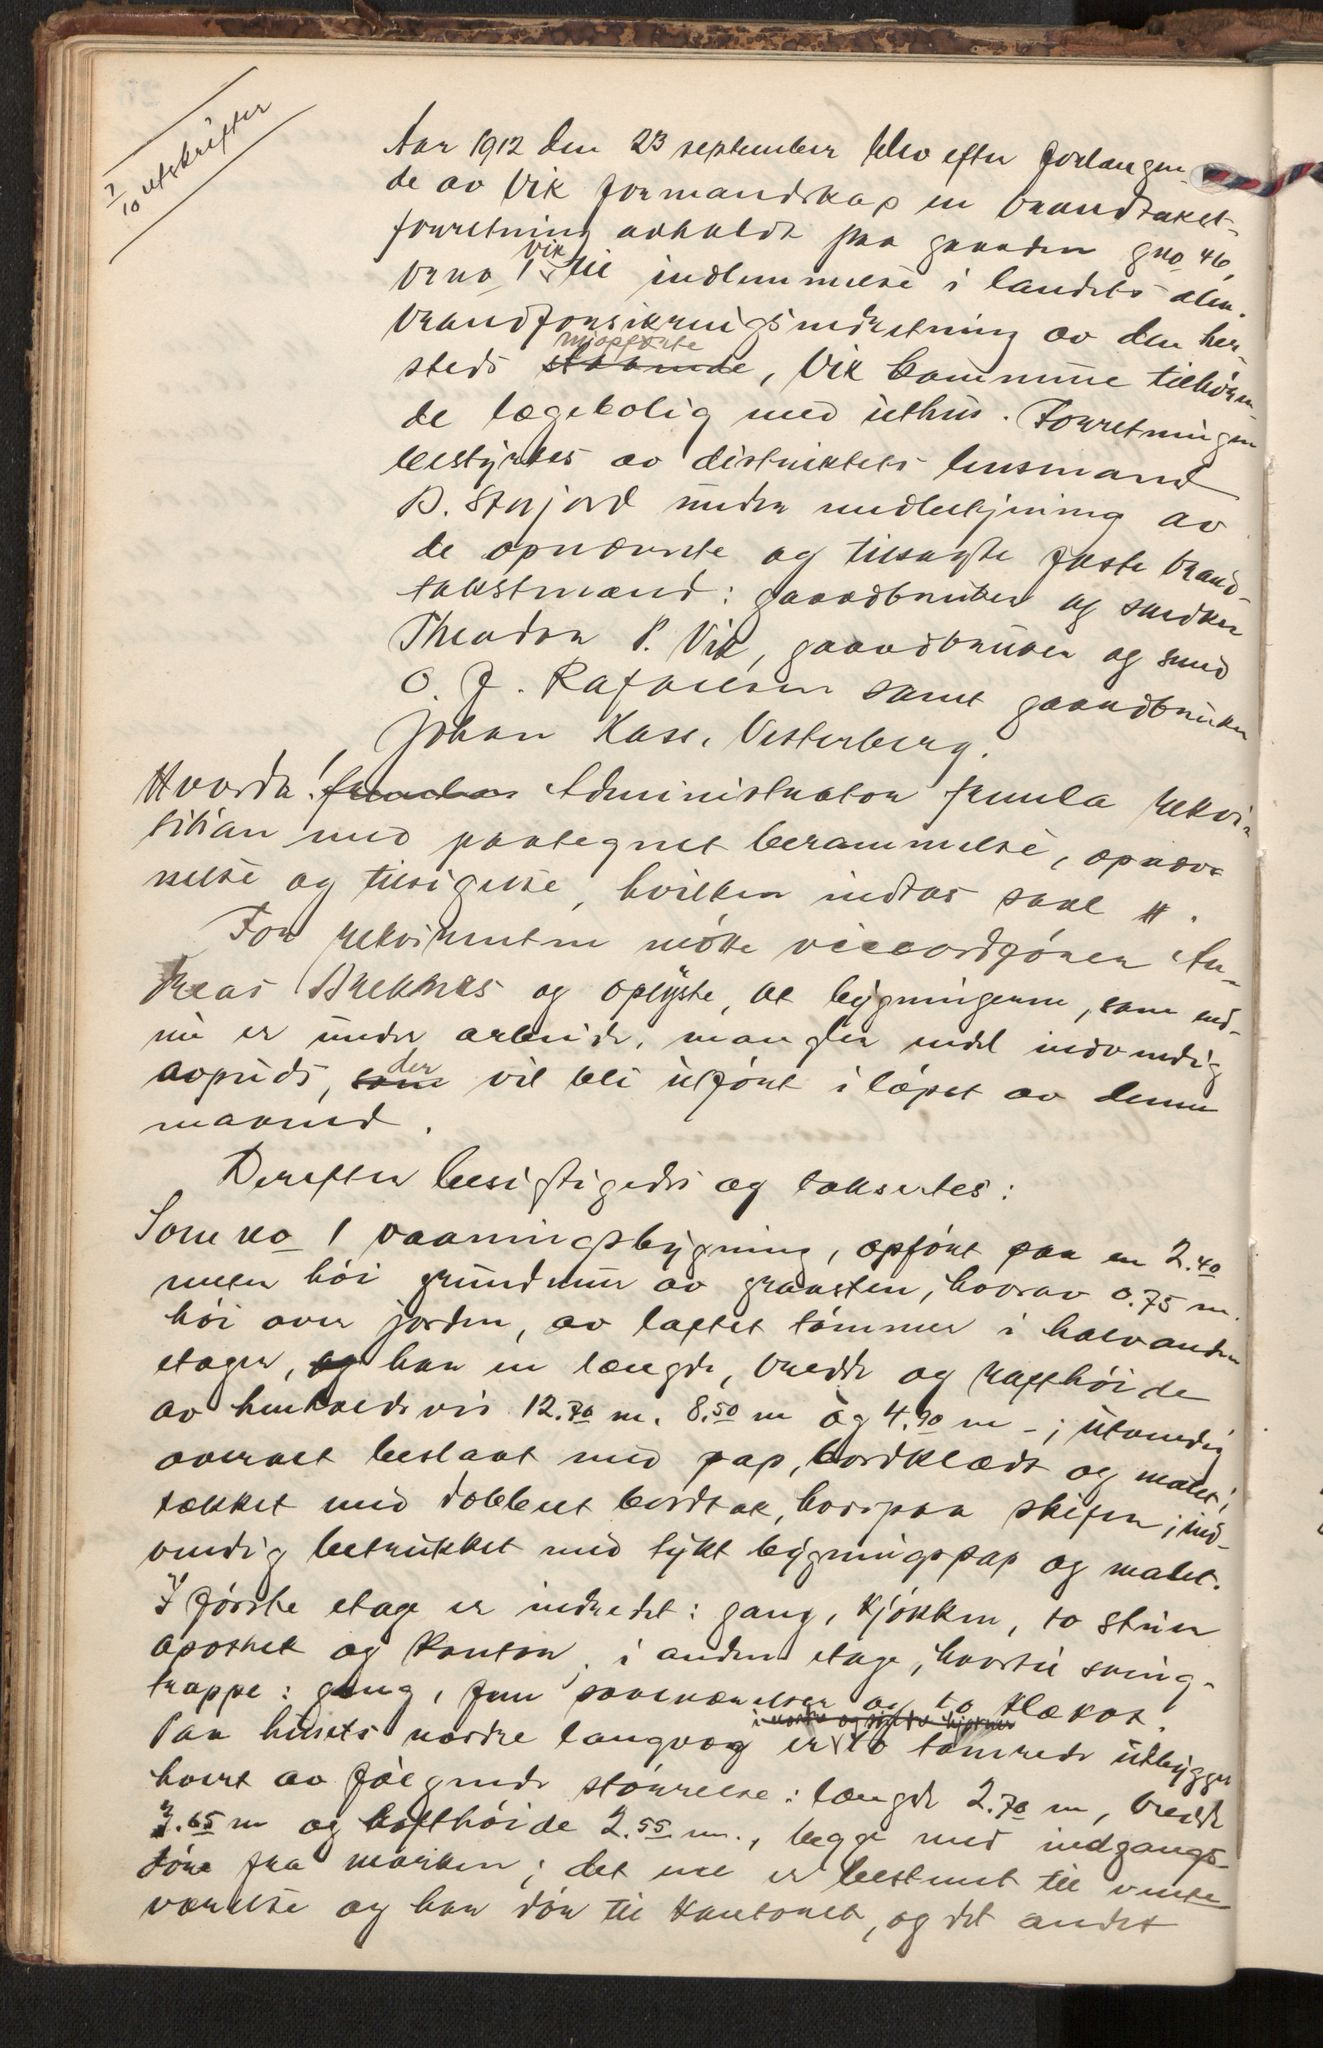 7/10 utskrifter
Aar 1912 den 23 september blev efter forlangen-
de av Vik formandskap en brandtakst-
forretning avholdt paa gaarden gno 46,
brno 1 Vik til indlemmelse i landets alm.
brandforsikringsindretning av den her-
steds staaende nyopførte, Vik kommune tilhøren-
de lægebolig med uthus. Forretningen
bestyrtes av distriktets lensmand
B. Storjord under medbetjening av
de opnævnte og tilsagte faste brand-
takstmænd: gaardbruker og snedker
Theodor P. Vik, gaardbruker og smed
O. J. Rafaelsen samt gaardbruker
Johan Kass. Vesterberg.
Hvorda! Administrator fremla rekvi-
sitian med paategnet berammelse, opnæv-
nelse og tilsigelse, hvilken indtas saal #.
For rekvirenten møtte viceordfører An-
dreas Breknes og oplyste, at bygningerne, som end-
nu er under arbeide, mangler endel indvendig
avpuds, som der vil bli utført i løpet av denne
maaned.
Derefter besigtigedes og taksertes:
Som no 1 vaaningsbygning, opført paa en 2.40
meter høi grundmur av graasten, hvorav 0.75 m.
høi over jorden, av laftet tømmer i halvanden
etager, og har en længde, bredde og rafthøide
av henholdsvis 12.70 m. 8.50 m og 4.90 m -; utvendig
overalt beslaat med pap, bordklædt og malet;
tækket med dobbelt bordtak, hvorpaa skifer; ind-
vendig betrukket med tykt bygningspap og malet.
I første etage er indredet: gang, kjøkken, to stuer
apothek og kontor; i anden etage, hvortil sving-
trappe: gang, fem soveværelser og to klækot.
i nordre og søndre hjørner
Paa husets nordre langvæg er to tømrede utbygger
hvert av følgende størrelse: længde 2.70 m, bredde
3.65 m og lofthøide 2.55 m., begge med indgangs-
døre fra marken; det ene er bestemt til vente-
værelse og har dør til kontoret, og det andet